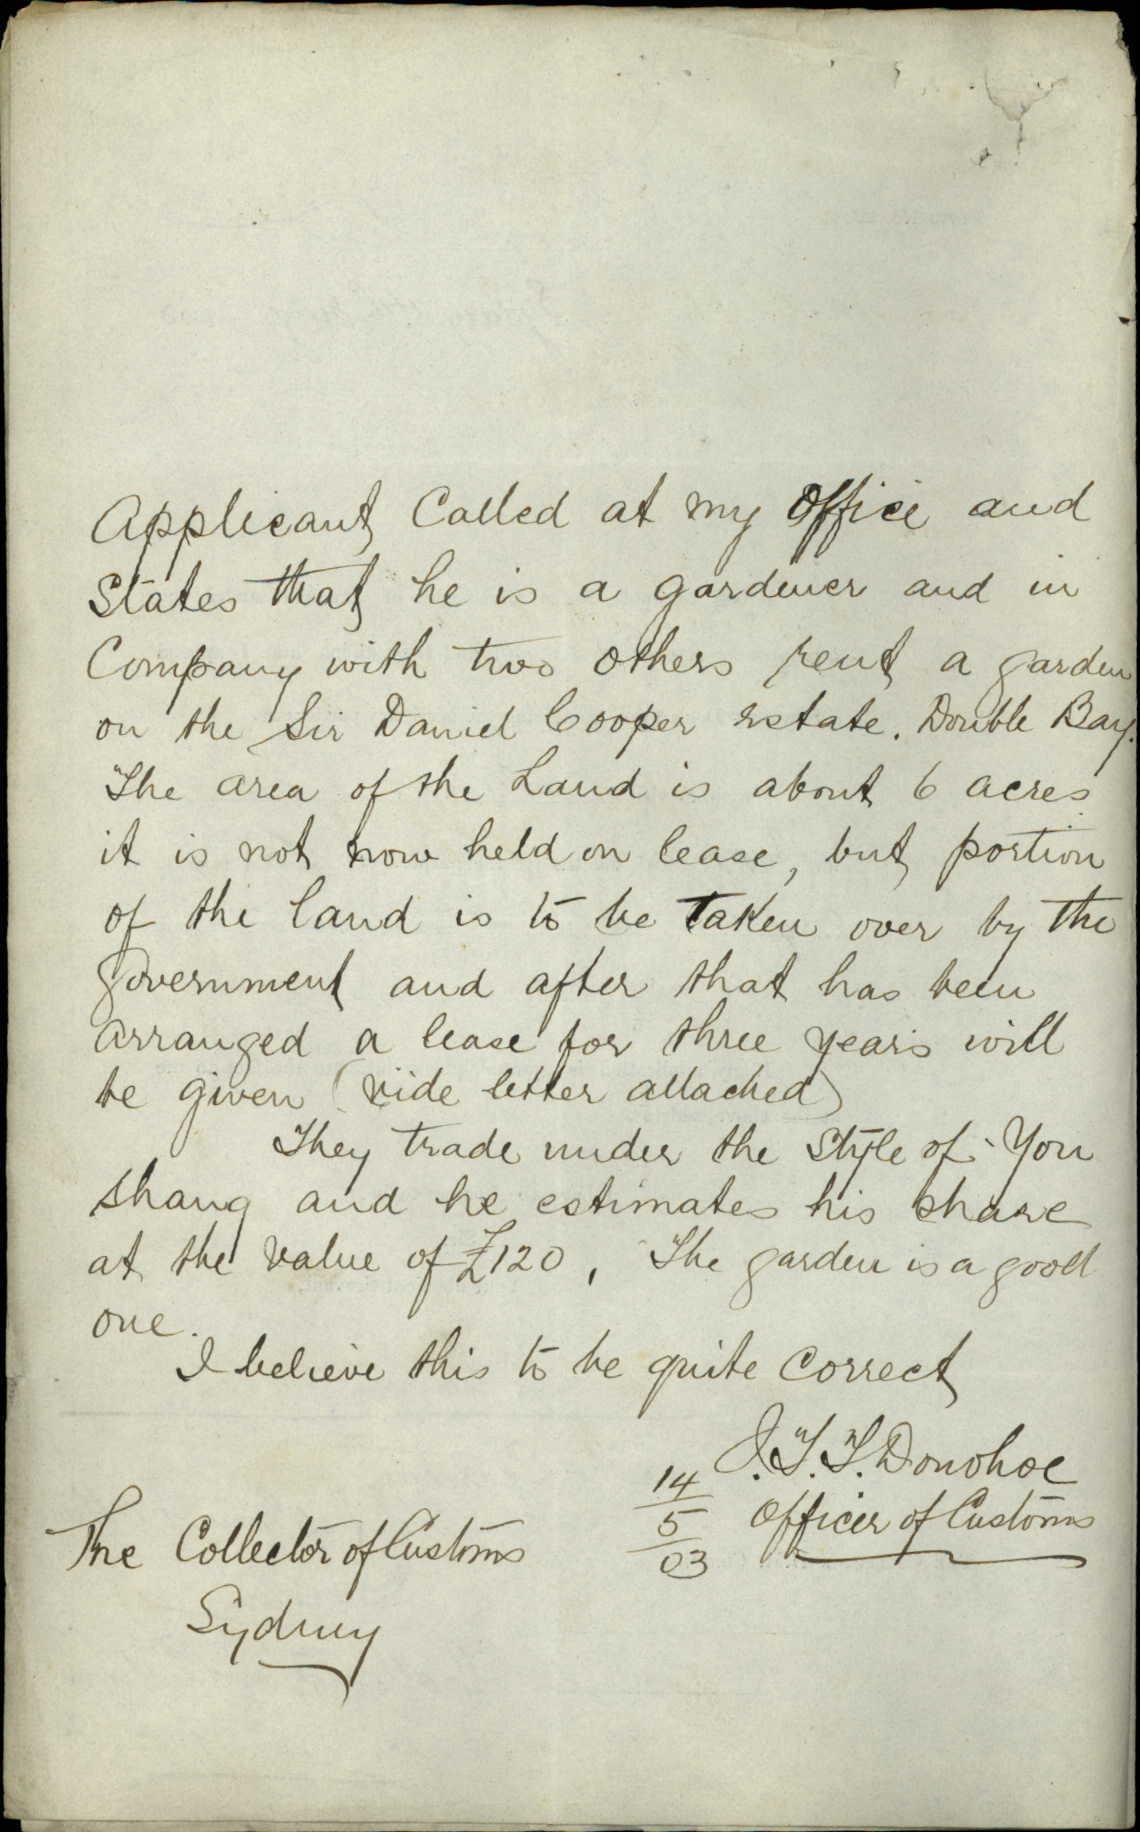 Applicant Called at my Office and
States that he is a gardener and in
Company with two others rent a garden
on the Sir Daniel Cooper Estate. Double Bay.
The area of the Land is about 6 acres
it is not now held on lease, but portion
of the land is to be Taken over by the
Government and after that has been
arranged a lease for three years will
be given (vide letter attached)
They trade under the Style of You
Shang and he estimates his share
at the value of £120, The garden is a good
one.
I believe this to be quite Correct
J.T.T. Donohoe
Officer of Customs
14
5
03
The Collector of Customs
Sydney